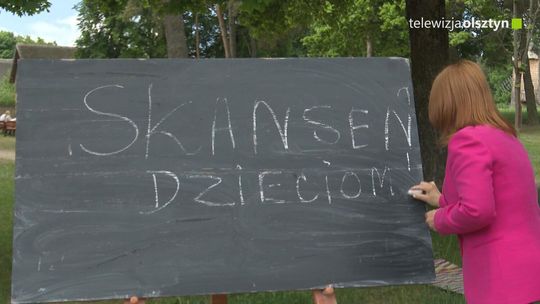 telewizjaolsztyn
SKANSEN
DZIECIOM!